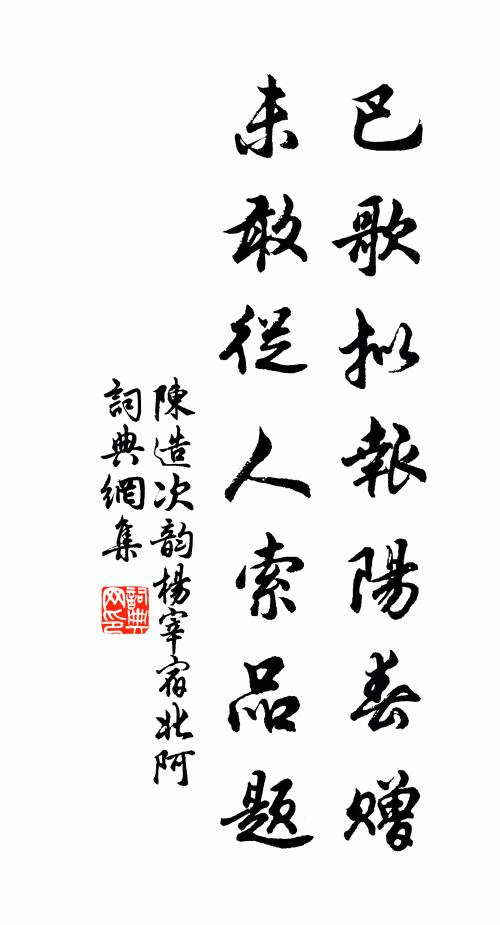 巴歌拟報陽春赠
未敢從人索品题
陳造次韵楊宰宿北阿
詞典網集
詞典网印